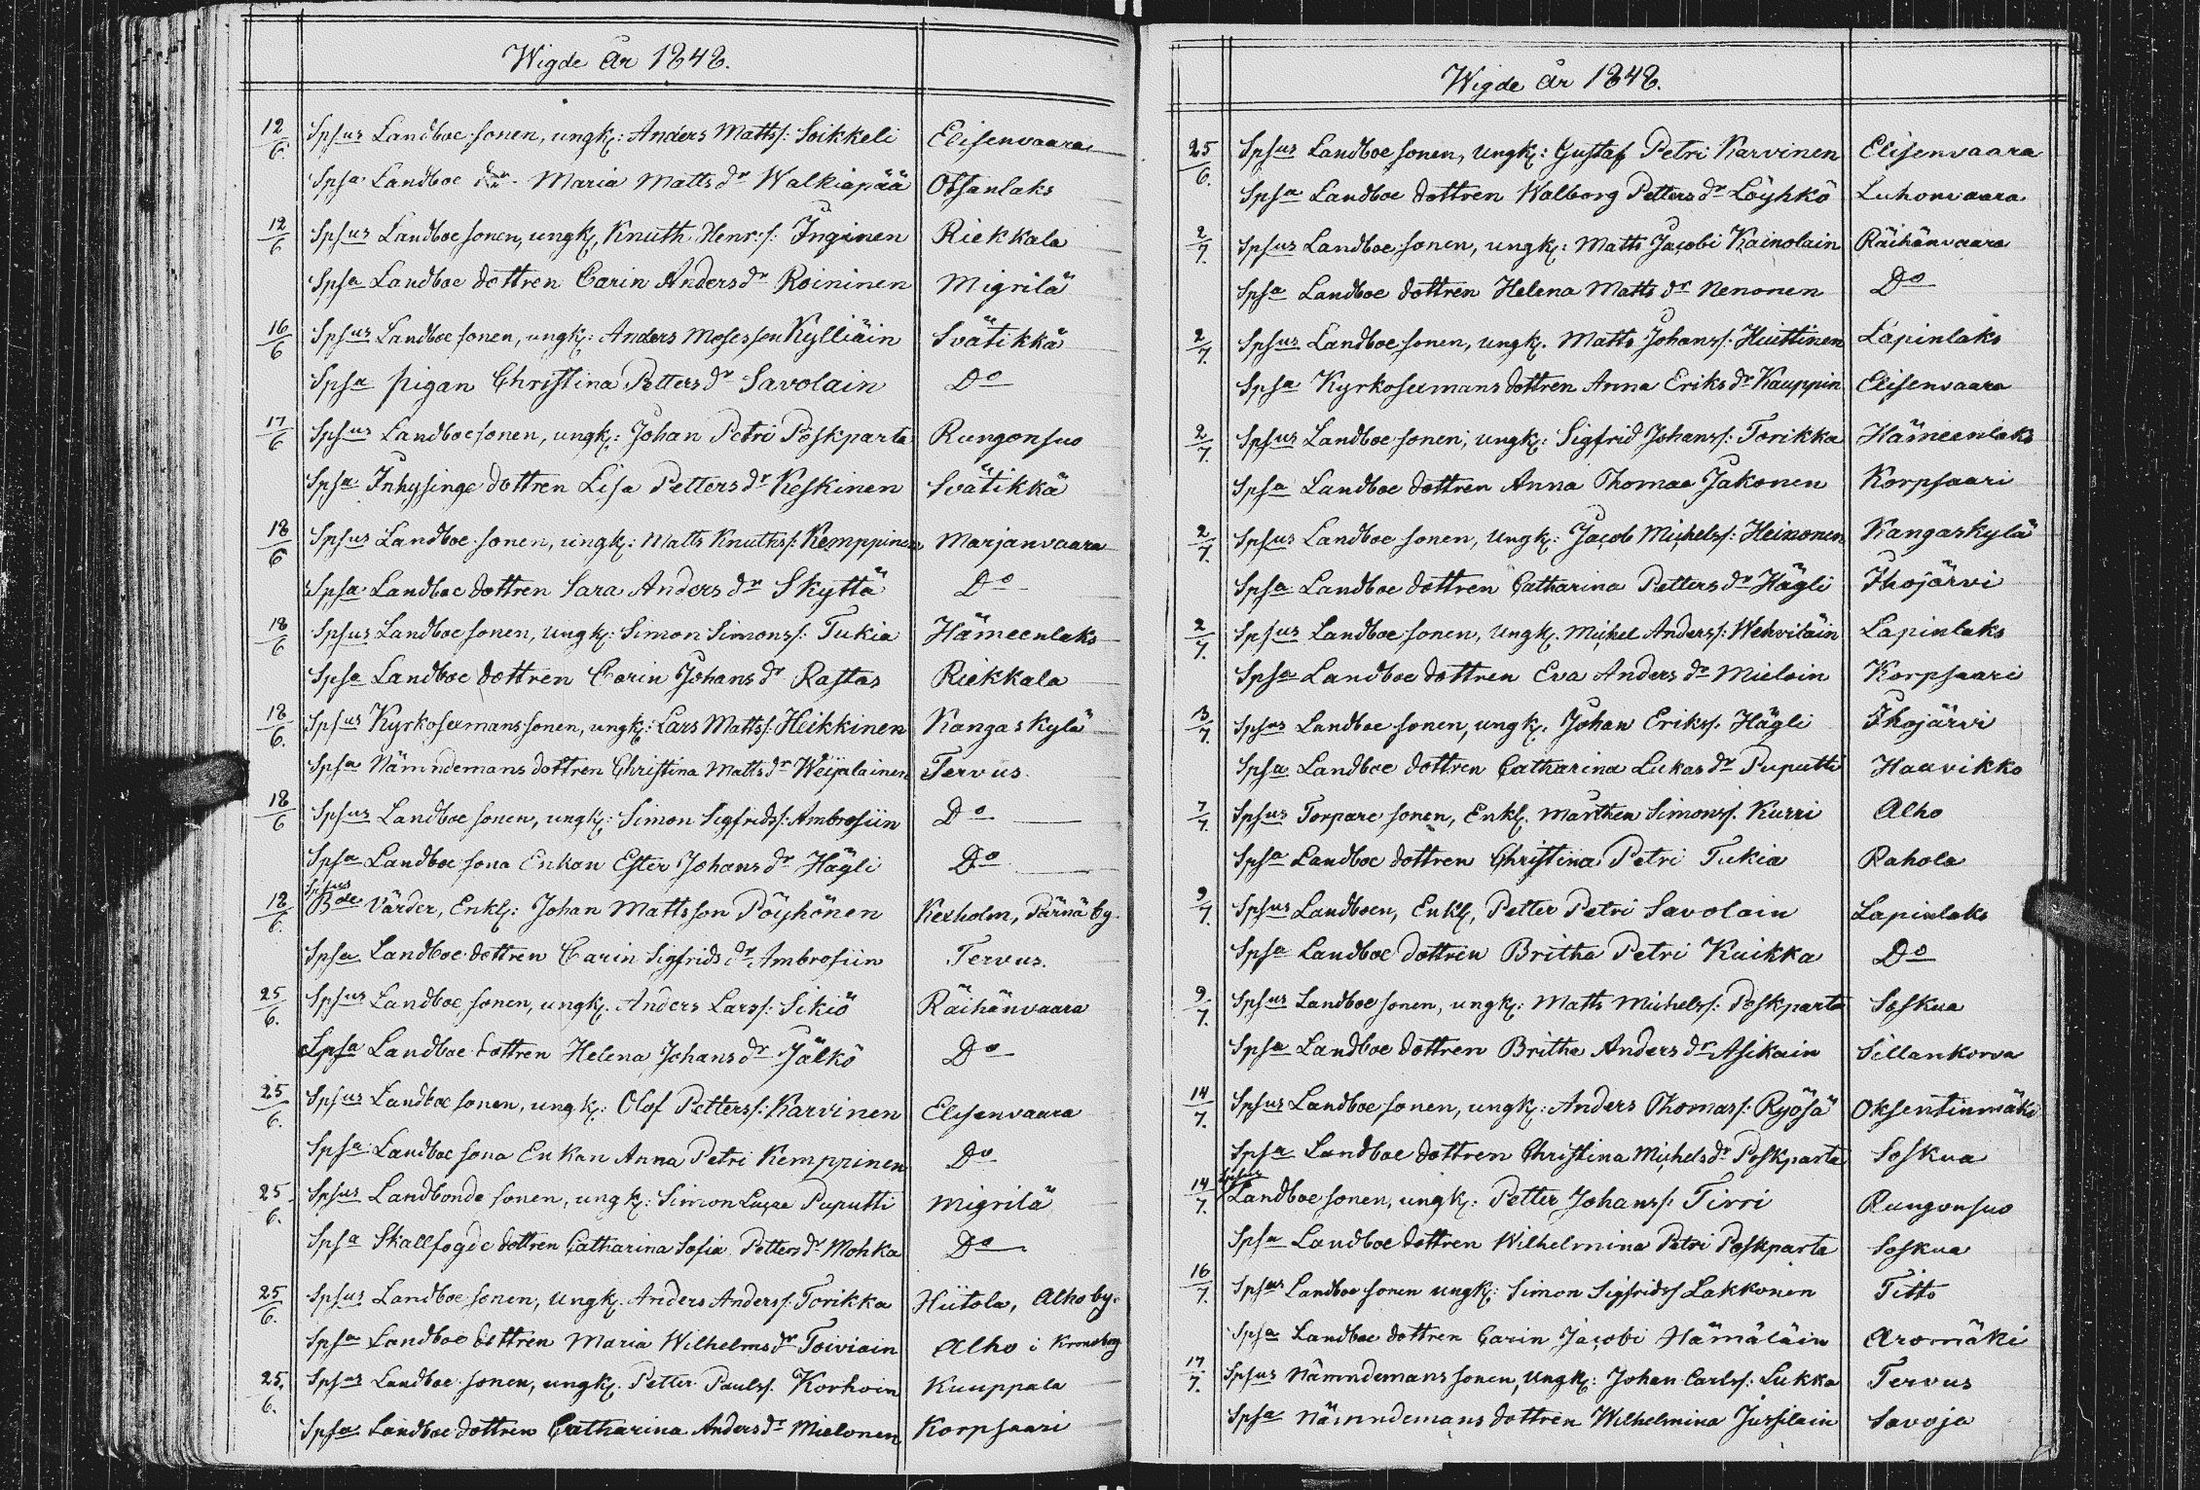 Wigde år 1848.
12/6 Spsus Landboe sonen, ungk: Anders Mattss: Soikkeli Elisenvaara
Spsa Landboe dr Maria Mattsdr Walkiapää Otsanlaks
12/6 Spsus Landboe sonen, ungk, Knuth Henr:s: Inginen Riekkala
Spsa Landboe dottren Carin Andersdr Roininen Migrilä
16/6 Spsus Landboe sonen, ungk: Anders Mosesson Kylliäin Svätikkä
Spsa pigan Christina Pettersdr Savolain Do
17/6 Spsus Landboe sonen, ungk: Johan Petri Poskparta Rungonsuo
Spsa Inhysinge dottren Lisa Pettersdr Keskinen Svätikkä
18/6 Spsus Landboe sonen, ungk: Matts Knuths: Kemppinen Marjanvaara
Spsa Landboe dottren Sara Andersdr Skyttä Do
18/6 Spsus Landboe sonen, ungk: Simon Simonss: Tukia Hämeenlaks
Spsa Landboe dottren Carin Johansdr Rastas Riekkala
18/6. Spsus Kyrkosexmans sonen, ungk: Lars Mattss: Heikkinen Kangaskylä
Spsa Nämndemans dottren Christina Mattsdr Weijalainen Tervus.
18/6 Spsus Landboe sonen, ungk: Simon Sigfridss: Ambrosiin Do
Spsa Landboe sona Enkan Ester Johansdr Hägli Do
18/6. Spsus Bde Värder, Enkl: Johan Mattsson Pöyhönen Kexholm, Pärnä by.
Spsa Landboe dottren Carin Sigfridsdr Ambrosiin Tervus.
25/6. Spsus Landboe sonen, ungk. Anders Larss: Sikiö Räihänvaara
Spsa Landboe dottren Helena Johansdr Jälkö Do
25/6. Spsus Landboe sonen, ungk: Olof Petterss: Karvinen Elisenvaara
Spsa Landboe sona Enkan Anna Petri Kemppinen Do
25/6. Spsus Landbonde sonen, ungk: Simon Lucae Puputti Migrilä
Spsa Skallfogde dottren Catharina Sofia Pettersdr Mohka Do
25/6. Spsus Landboe sonen, ungk. Anders Anderss: Torikka Hiitola, Alho by.
Spsa Landboe dottren Maria Wilhelmsdr Toiviain Alho i Kronoborg
25./6. Spsus Landboe sonen, ungk. Petter Paulss. Korhoin Kuuppala
Spsa Landboe dottren Catharina Andersdr Mielonen Korpsaari
Wigde år 1848.
25/6. Spsus Landboe sonen, ungk: Gustaf Petri Karvinen Elisenvaara
Spsa Landboe dottren Walborg Pettersdr Löyhkö Luhonvaara
2/7. Spsus Landboe sonen, ungk: Matts Jacobi Kainolain Räihänvaara
Spsa Landboe dottren Helena Mattsdr Nenonen Do
2/7. Spsus Landboe sonen, ungk. Matts Johanss: Huittinen Lapinlaks
Spsa Kyrkosexmans dottren Anna Eriksdr Kauppin Elisenvaara
2/7. Spsus Landboe sonen, ungk: Sigfrid Johanss: Torikka Hämeenlaks
Spsa Landboe dottren Anna Thomae Jakonen Korpsaari
2/7. Spsus Landboe sonen, ungk: Jacob Michelss: Heinonen Kangaskylä
Spsa Landboe dottren Catharina Pettersdr Hägli Ihojärvi
2/7. Spsus Landboe sonen, ungk. Michel Anderss: Wehviläin Lapinlaks
Spsa Landboe dottren Eva Andersdr Mieloin Korpsaari
3/7. Spsus Landboe sonen, ungk. Johan Erikss. Hägli Ihojärvi
Spsa Landboe dottren Catharina Lukasdr Puputti Haavikko
7/7. Spsus Torpare sonen, Enkl. Marthen Simonss. Kurri Alho
Spsa Landboe dottren Christina Petri Tukia Rahola
9/7. Spsus Landboen, Enkl, Petter Petri Savolain Lapinlaks
Spsa Landboe dottren Britha Petri Kuikka Do
9/7. Spsus Landboe sonen, ungk: Matts Michelss: Poskparta Soskua
Spsa Landboe dottren Britha Andersdr Asikain Sillankorva
14/7. Spsus Landboe sonen, ungk: Anders Thomass: Ryösä Oksentinmäki
Spsa Landboe dottren Christina Michelsdr Poskparta Soskua
14/7. Spsus Landboe sonen, ungk: Petter Johanss: Tirri Rungonsuo
Spsa Landboe dottren Wilhelmina Petri Poskparta Soskua
16/7. Spsus Landboe sonen ungk: Simon Sigfridss Lakkonen Titto
Spsa Landboe dottren Carin Jacobi Hämäläin Aromäki
17/7. Spsus Nämndemans sonen, ungk: Johan Carlss: Lukka Tervus
Spsa Nämndemans dottren Wilhelmina Jussilain Savoja